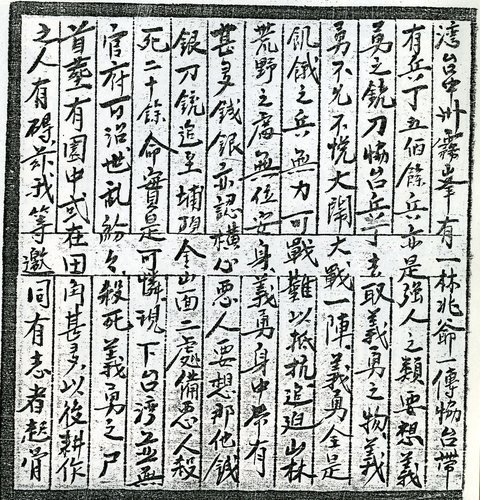 湾台中州霧峯有一林兆爺一傳協台帶
有兵丁五伯餘兵亦是强人之類要想義
勇之銃刀協台兵丁去取義勇之物義
勇不允不悅大鬧大戰一陣義勇全是
飢餓之兵無力可戰難以抵抗追迫山林
荒野之處無位安身義勇身中帶有
甚多錢銀亦認橫心惡人要想那他錢
銀刀銃追至埔頂金山面二處備惡人殺
死二十餘命實是可憐現下台湾並無
官府可治世乱紛々殺死義勇之尸
首塟有園中或在田角甚多以後耕作
之人有碍茲我等邀同有志者起骨